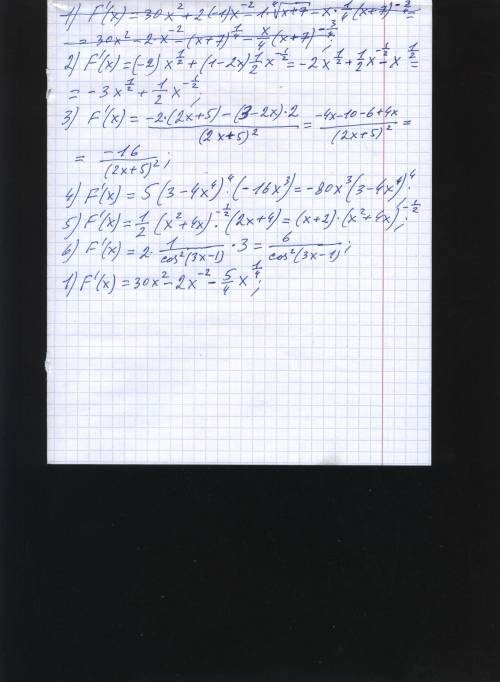 1) F'(x) = 30x² + 2·(-1)x⁻² - 1·⁴√(x+7) - x·1/4(x+7)^(-3/4) =
= 30x² - 2·x⁻² - (x+7)^(1/4) - x/4(x+7)^(-3/4);
2) F'(x) = (-2)x^(1/2) + (1-2x)1/2x^(-1/2) = -2x^(1/2) + 1/2x^(-1/2) - x^(1/2) =
= -3x^(1/2) + 1/2x^(-1/2);
3) F'(x) = (-2·(2x+5) - (3-2x)·2)/(2x+5)² = (-4x-10-6+4x)/(2x+5)² =
= -16/(2x+5)²;
4) F'(x) = 5(3-4x⁴)⁴·(-16x³) = -80x³(3-4x⁴)⁴;
5) F'(x) = 1/2(x²+4x)^(-1/2)·(2x+4) = (x+2)·(x²+4x)^(-1/2);
6) F'(x) = 2·1/cos²(3x-1)·3 = 6/cos²(3x-1);
1) F'(x) = 30x² - 2x⁻² - 5/4x^(1/4);